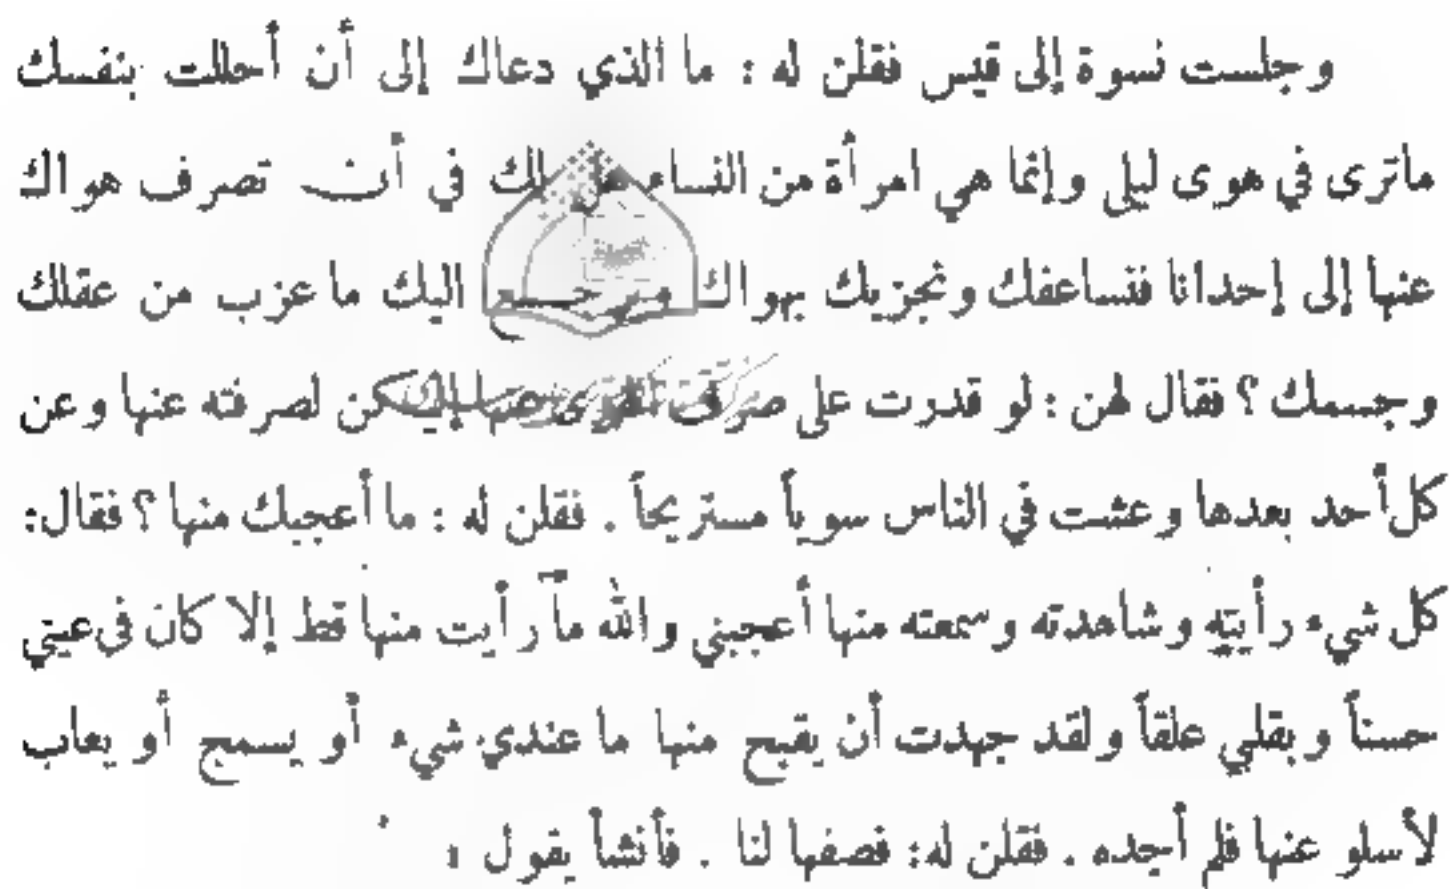 وجلست نسوة إلى قيس فقلن له : ما الذي دعاك إلى أن أحللت بنفسك
ماترى في هوى ليلى وإنما هي امرأة من النساء هل لك في أن تصرف هواك
عنها إلى إحدانا فنساعفك ونجزيك بهواك ويرجع اليك ما عزب من عقلك
وجسمك ؟ فقال لهن : لو قدرت على صرف الهوى عنها إليكن لصرفته عنها وعن
كل أحد بعدها وعشت في الناس سوياً مستريحاً . فقلن له : ما أعجبك منها ؟ فقال:
كل شيء رأيته وشاهدته وسمعته منها أعجبني والله ما رأيت منها قط إلا كان في عيني
حسناً وبقلبي علقاً ولقد جهدت أن يقبح منها ما عندي شيء أو يسمج أو يعاب
لأسلو عنها فلم أجده . فقلن له: فصفها لنا . فأنشأ يقول :